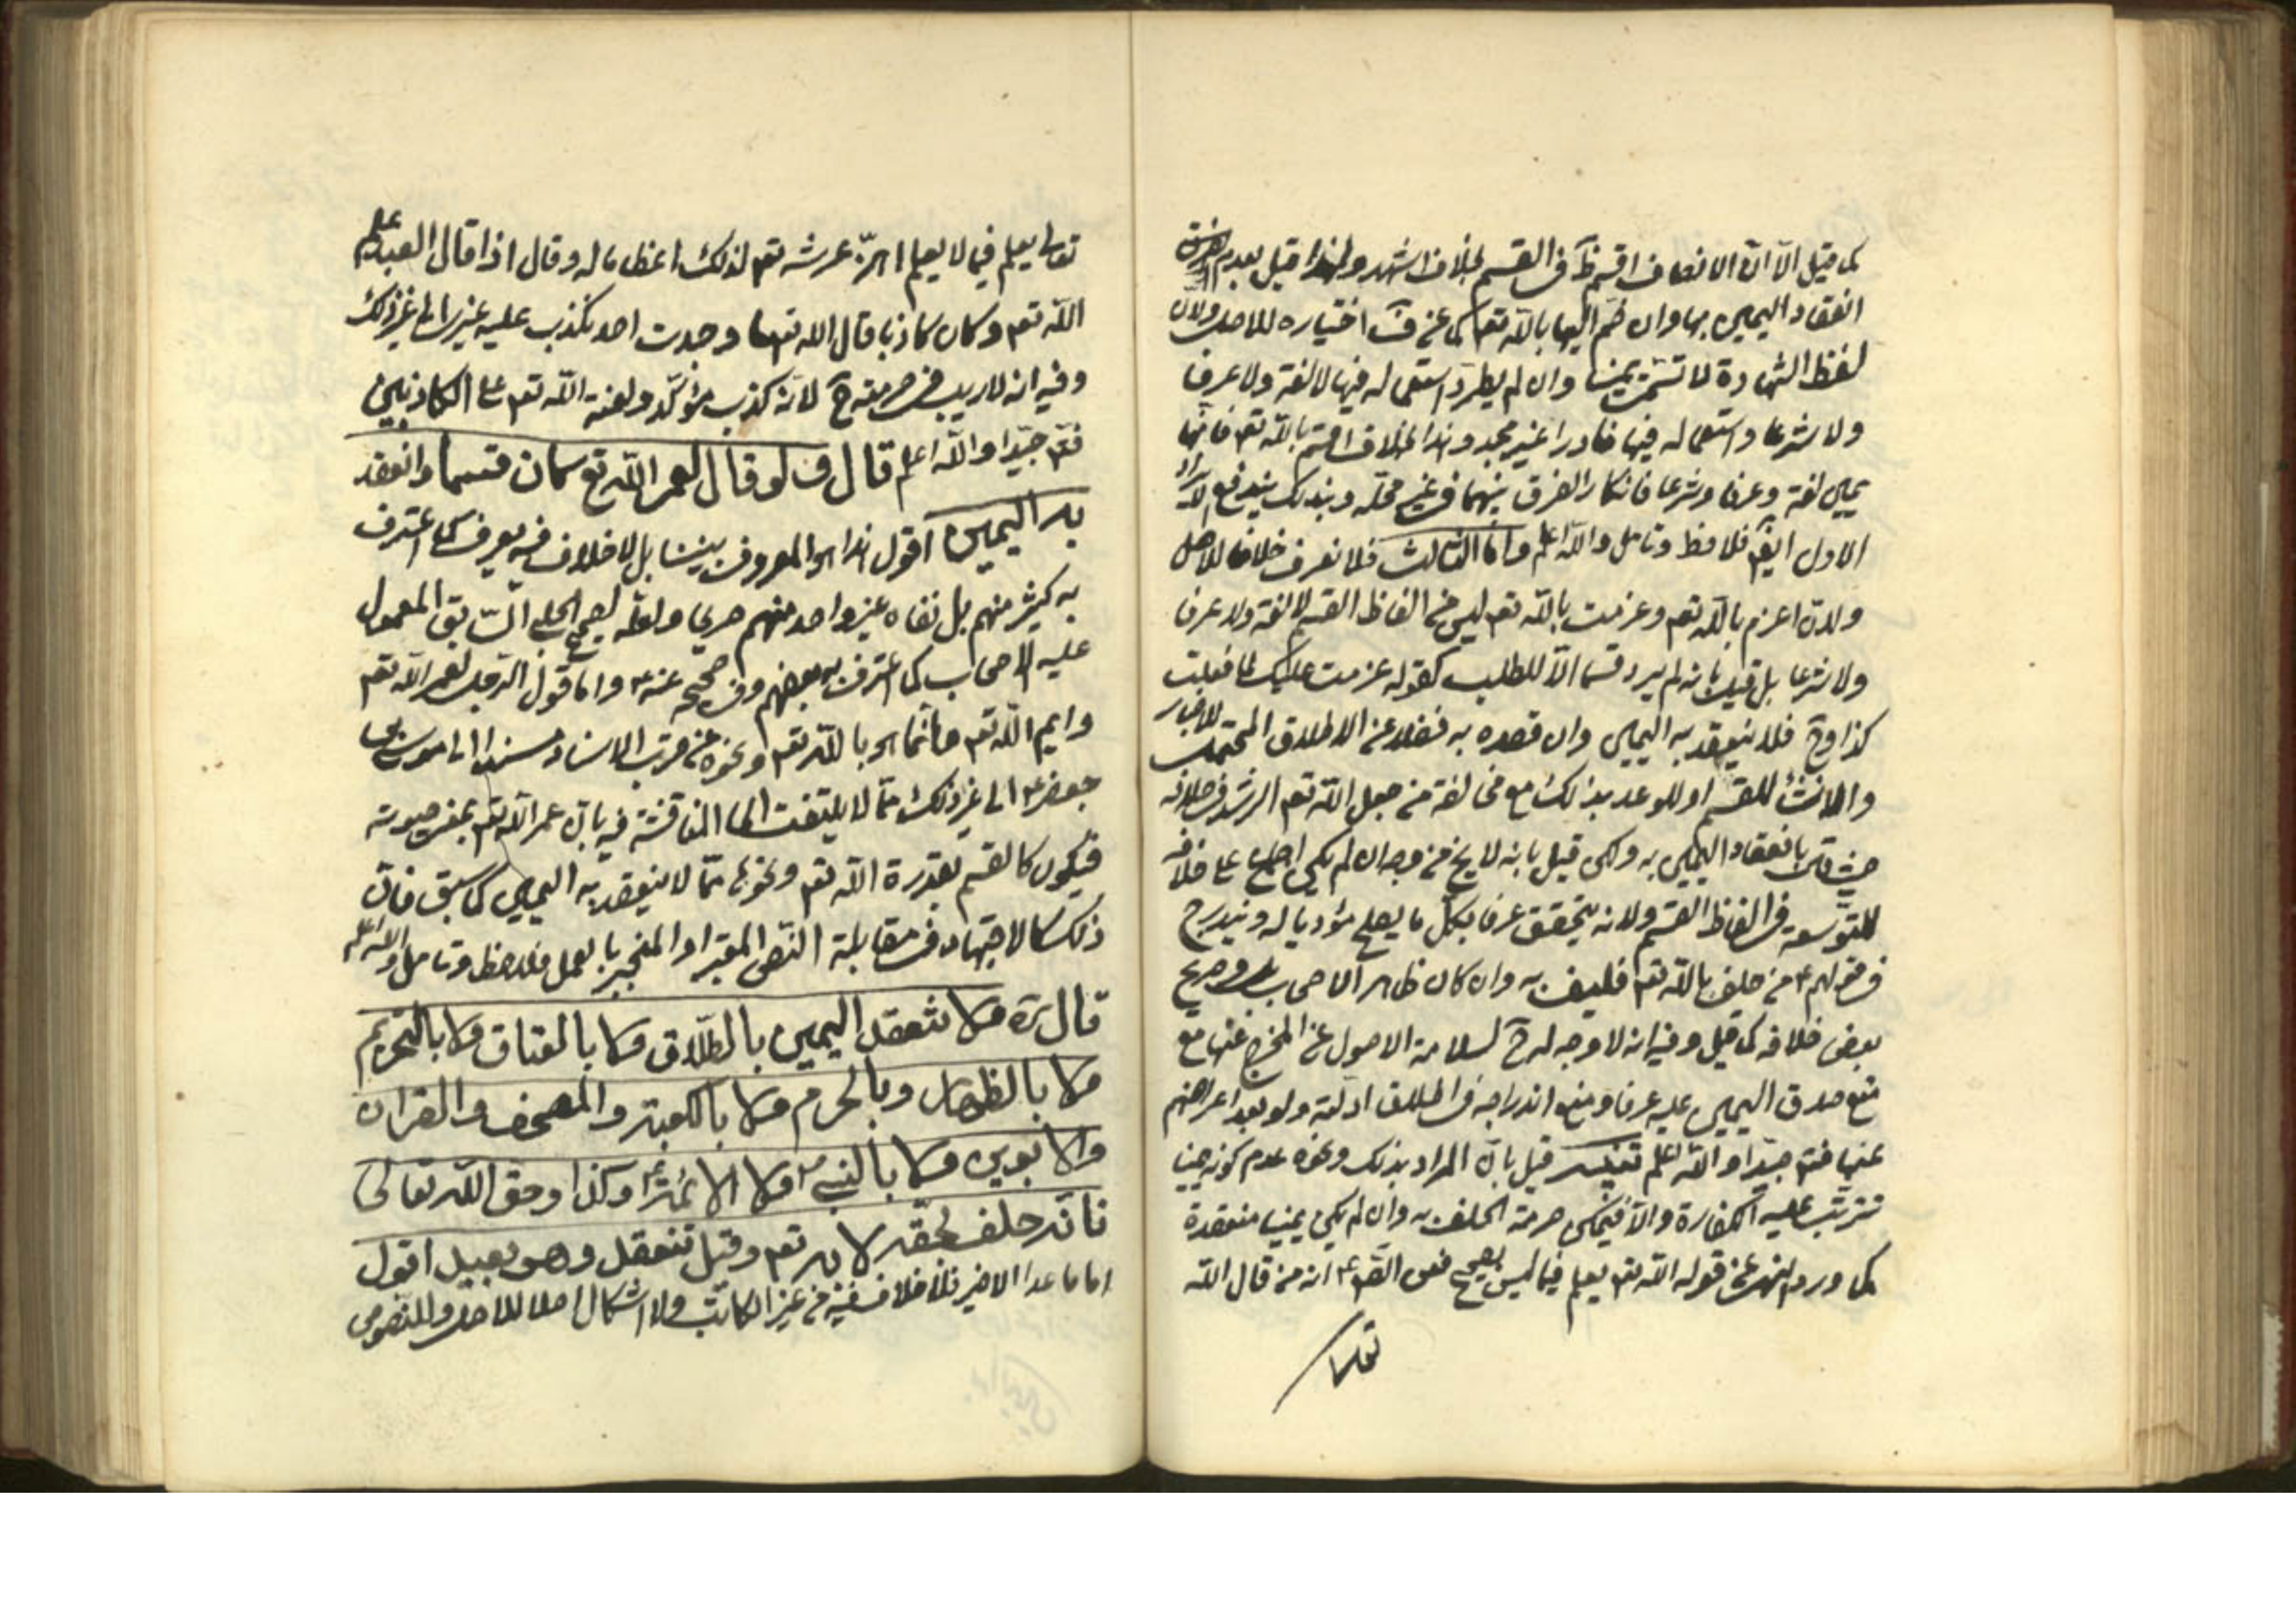 كما قيل الا ان الانصاف اقسم ظ في القسم بخلاف اشهد ولهذا قيل بعدم
انعقاد اليمين بها وان ضم اليها بالله تعالى كما عن ف اختياره للاصل ولان
لفظ الشهادة لا تسمى يمينا وان لم يطرد استعماله فيها لا لغة ولا عرفا
ولا شرعا واستعماله فيها نادرا غير مجد وهذا بخلاف اقسم بالله تعم فانها
يمين لغة وعرفا وشرعا فانكار الفرق بينهما في غير محله وبذلك يندفع الايراد
الاول ايضا فلاحظ وتامل والله اعلم واما الثالث فلا نعرف خلافا للاصل
ولان اعزم بالله تعم وعزمت بالله تعم ليس من الفاظ القسم لا لغة ولا عرفا
ولا شرعا بل قيل بانه لم يرد قسما الا للطلب كقوله عزمت عليك لما فعلت
كذا وح فلا ينعقد به اليمين وان قصده به فضلا عن الاطلاق المحتمل للاخبار
والانشاء للقسم او للوعد بذلك مع مخالفة من جعل الله تعم الرشد في خلافه
حيث قال بانعقاد اليمين به ولكن قيل بانه لا يخ من وجه ان لم يكن اجماع على خلافه
للتوسعة في الفاظ القسم ولانه يتحقق عرفا بكل ما يصلح مؤديا له ويندرج
في قولهم ع من حلف بالله تعم فليف به وان كان ظاهر الاصحاب وصريح
بعض خلافه كما قيل وفيه انه لا وجه له ح لسلامة الاصول عن المخرج عنها مع
منع صدق اليمين عليه عرفا ومنع اندراجه في اطلاق ادلته ولو بعد اعراضهم
عنها فتم جيدا والله اعلم تفسير قيل بان المراد بذلك ونحوه عدم كونه يمينا
تترتب عليه الكفارة والا فيمكن حرمة الحلف به وان لم يكن يمينا منعقدة
كما ورد النهي عن قوله الله تعم يعلم فيما ليس بصحيح فعن الص ع انه من قال الله
تعالى
تعالى يعلم فيما لا يعلم اهتز عرشه تعم لذلك اعظاما له وقال اذا قال العبد علم
الله تعم وكان كاذبا قال الله تعالى اما وجدت احد تكذب عليه غيري الى غير ذلك
وفيه انه لا ريب في حرمته ح لانه كذب مؤكد ولعنة الله تعم على الكاذبين
فتم جيدا والله اعلم قال ف لو قال لعمر الله تع كان قسما وانعقد
به اليمين اقول هذا هو المعروف بيننا بل لا خلاف فيه يعرف كما اعترف
به كثير منهم بل نفاه غير واحد منهم صريحا ولعله لصحيح الحلبي السابق المعمول
عليه الاصحاب كما اعترف به بعضهم وفي صحيحه عنه ع واما قول الرجل لعمر الله تعم
وايم الله تعم فانما هو بالله تعم ونحوه عن قرب الاسناد مسندا الى موسى بن
جعفر ع الى غير ذلك مما لا يلتفت الى المناقشة فيه بان عمر الله تعم بمعنى حيوته
فيكون كالقسم بقدرة الله تعم ونحوها مما لا ينعقد به اليمين كما سبق فان
ذلك كالاجتهاد في مقابلة النص المعتبر او المنجبر بالعمل فلاحظ وتامل والله اعلم
قال ره ولا تنعقد اليمين بالطلاق ولا بالعتاق ولا بالتحريم
ولا بالظهار وبالحرم ولا بالكعبة والمصحف والقران
والابوين ولا بالنبي ص ولا الائمة ع وكذا وحق الله تعالى
فانه حلف بحقه لا به تعم وقيل تنعقد وهو بعيد اقول
اما ما عدا الاخير فلا خلاف فيه من غير الكاتب ولا اشكال اصلا للاصل والنصوص